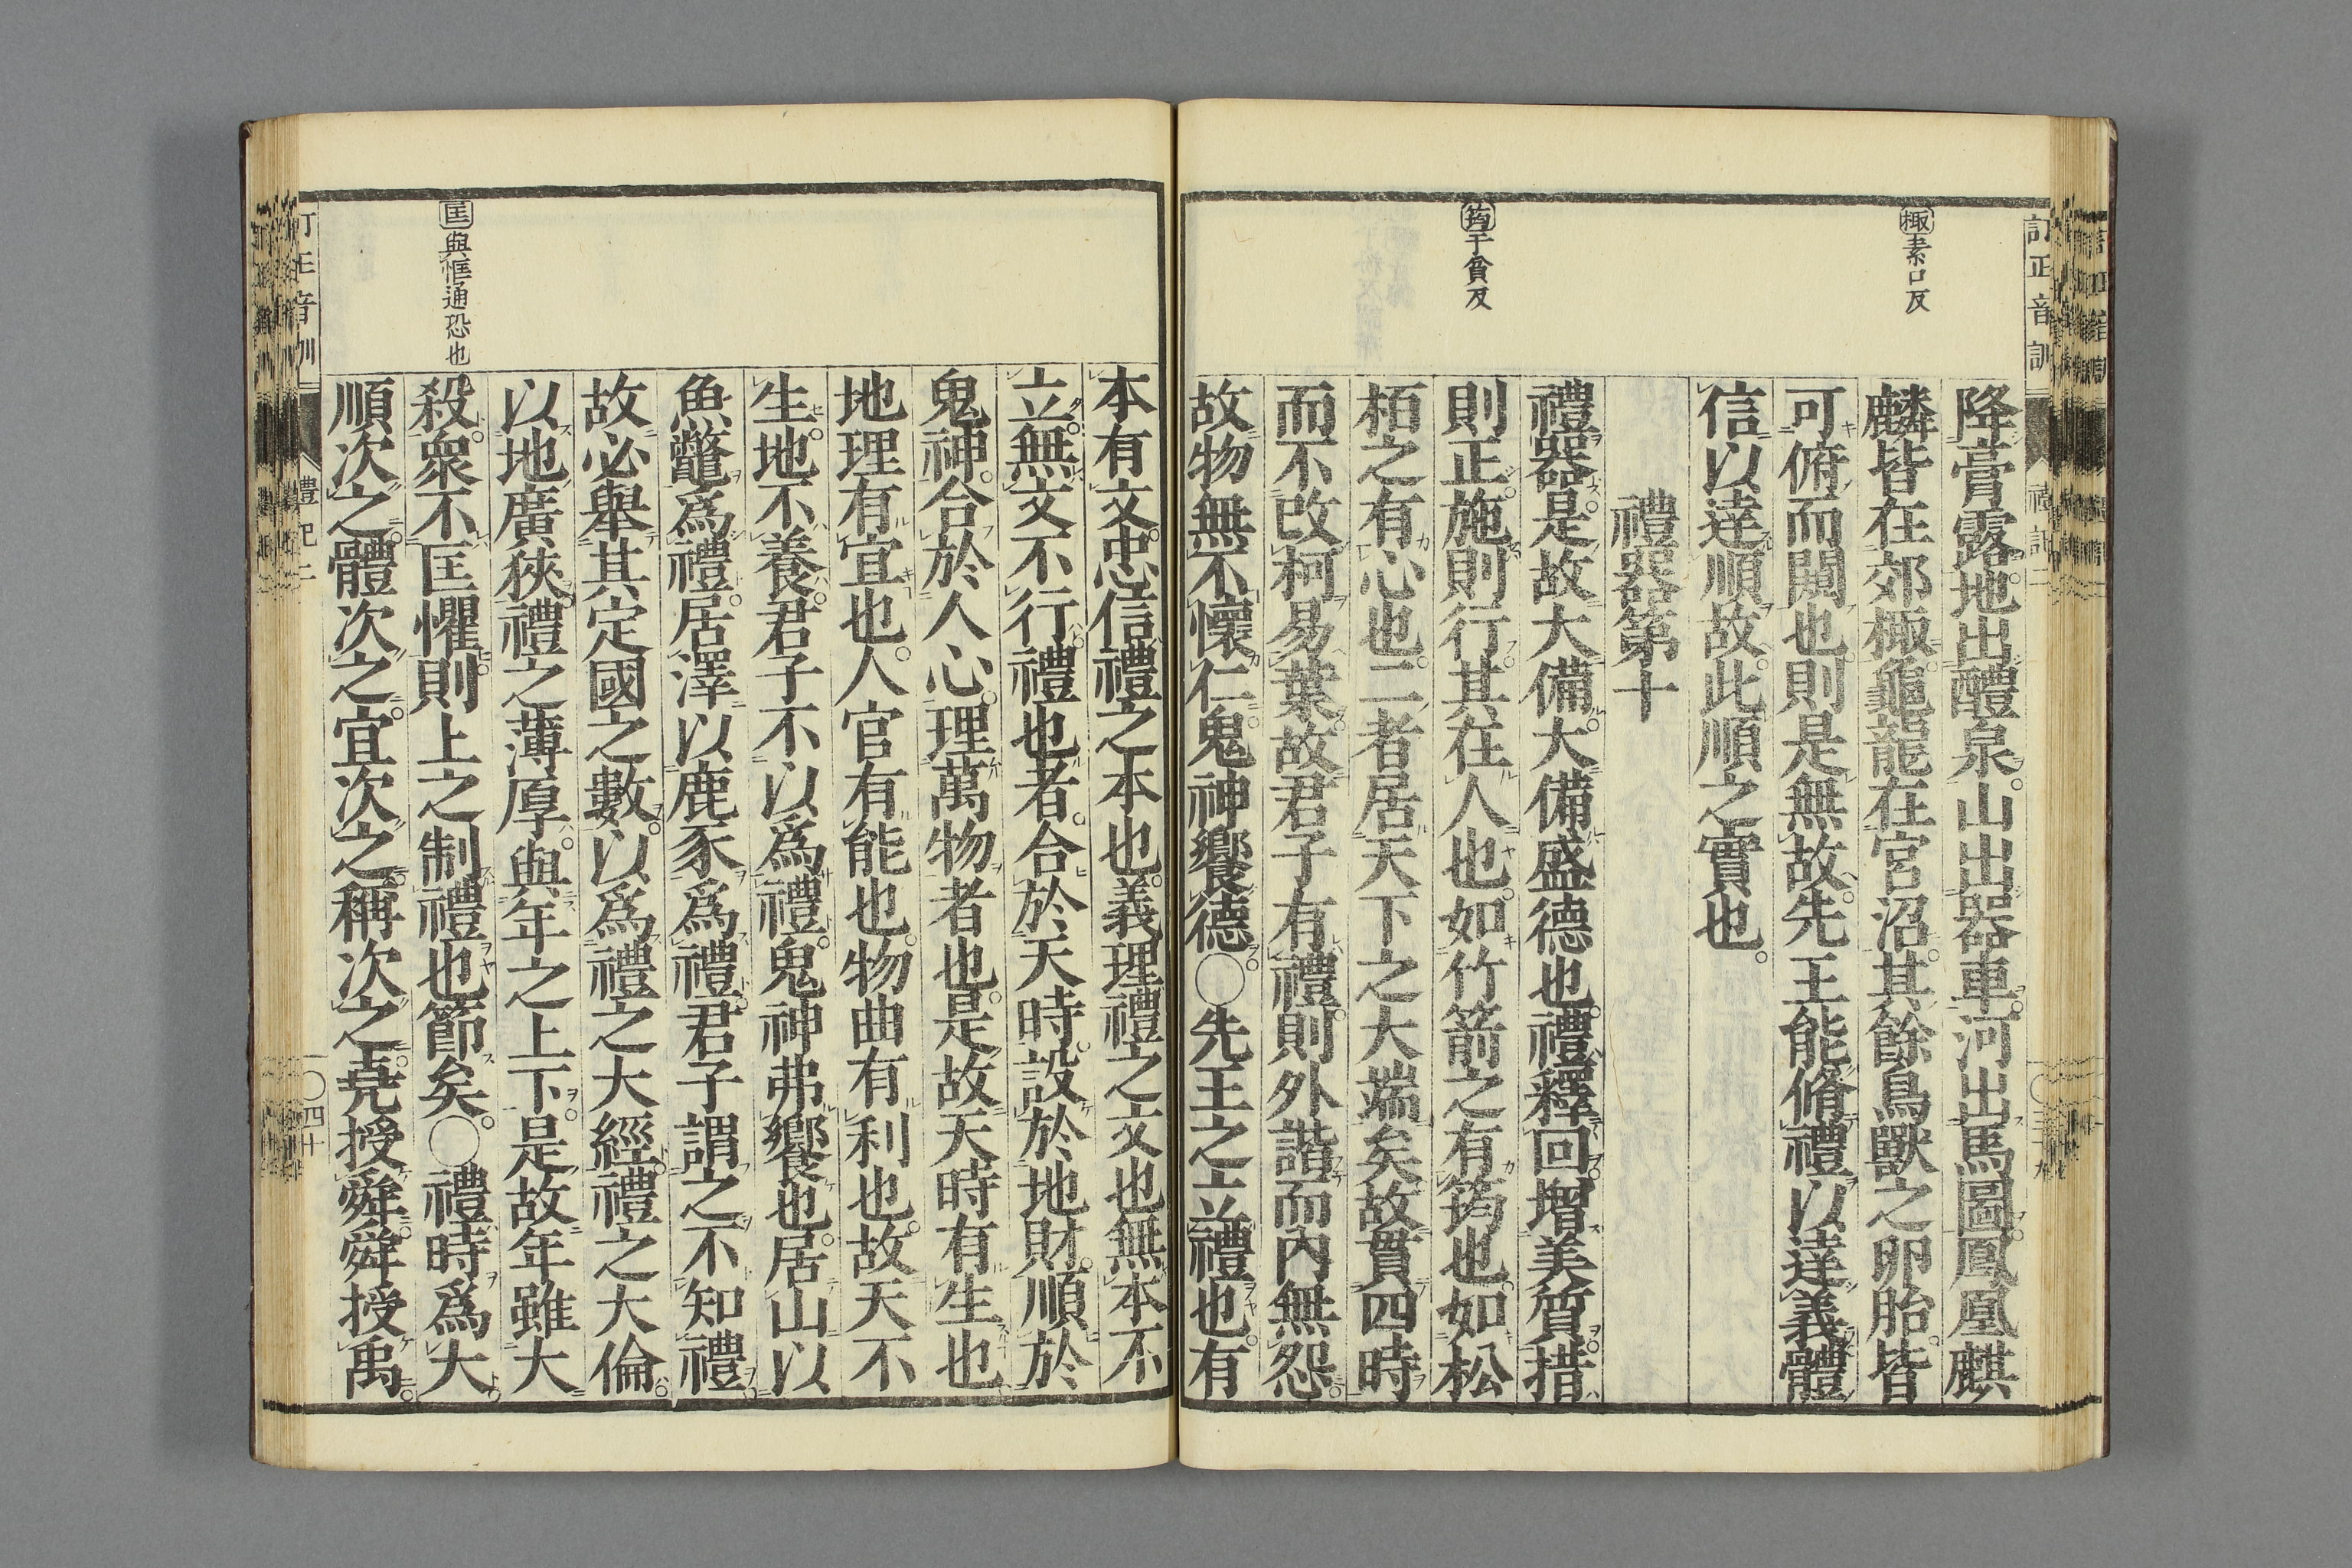 訂正音訓
禮記二
棷素口反
筠于貧反
降膏露地出醴泉山出器車河出馬圖鳳凰麒
麟皆在郊棷龜龍在宮沼其餘鳥獸之卵胎皆
可俯而闚也則是無故先王能脩禮以達義體
信以達順故此順之實也
禮器第十
禮器是故大備大備盛德也禮釋回增美質措
則正施則行其在人也如竹箭之有筠也如松
栢之有心也二者居天下之大端矣故貫四時
而不改柯易葉故君子有禮則外諧而內無怨
故物無不懷仁鬼神饗德〇先王之立禮也有
匡與恇通恐也
本有文忠信禮之本也義理禮之文也無本不
立無文不行禮也者合於天時設於地財順於
鬼神合於人心理萬物者也是故天時有生也
地理有宜也人官有能也物曲有利也故天不
生地不養君子不以爲禮鬼神弗饗也居山以
魚鼈爲禮居澤以鹿豕爲禮君子謂之不知禮
故必舉其定國之數以爲禮之大經禮之大倫
以地廣狹禮之薄厚與年之上下是故年雖大
殺衆不匡懼則上之制禮也節矣〇禮時爲大
順次之體次之宜次之稱次之堯授舜舜授禹
訂正音訓
禮記二
〇四十